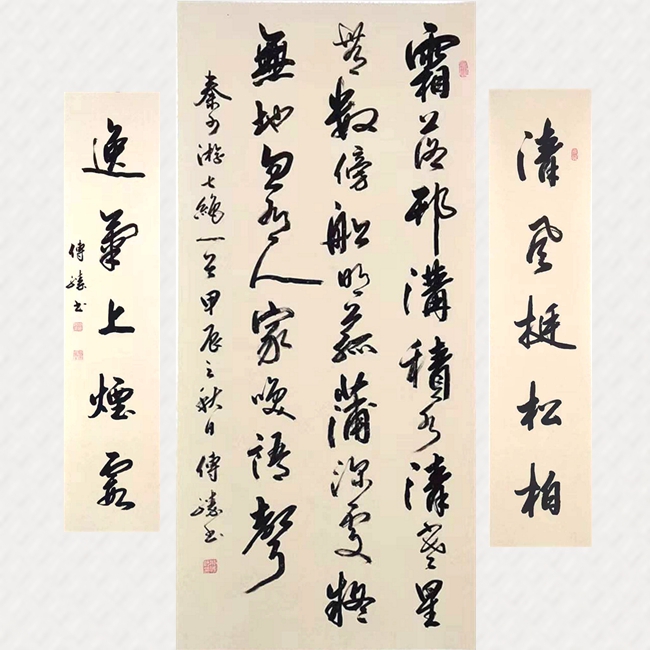 清風挺松柏
霜落邗溝積水清寒星
無數傍船明菰蒲深處疑
無地忽有人家咲語聲
秦少游七絕一首甲辰之秋日傅書
逸氣上煙霞
傅書